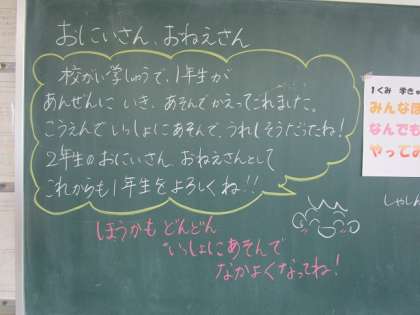 おにいさん、おねえさん
校がい学しゅうで、1年生が
あんぜんに いき、あそんで かえってこれました。
こうえんで いっしょにあそんで、うれしそうだったね!
2年生のおにいさん、おねえさんとして
これからも1年生をよろしくね!!
ほうかも どんどん
いっしょにあそんで
なかよくなってね!
1くみ 学きゅ
みんな
なんでも
やってみ
しゃしん